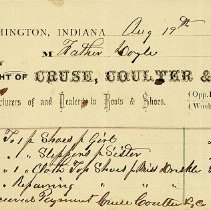 HINGTON, INDIANA Aug 19th
M Father Doyle
HT OF CRUSE, COULTER &
(Opp.
cturers of and Dealers in Boots & Shoes. (Wash
To 1 p Shoes p Girl
" 1 " Slippers p Sister
" 1 " Cloth Top Shoes p Miss
" Repairing
ceived Payment Cruse Coulter & Co